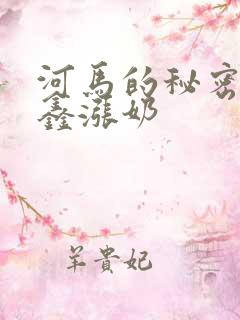 河馬的秘密
鑫漲奶
羊貴妃